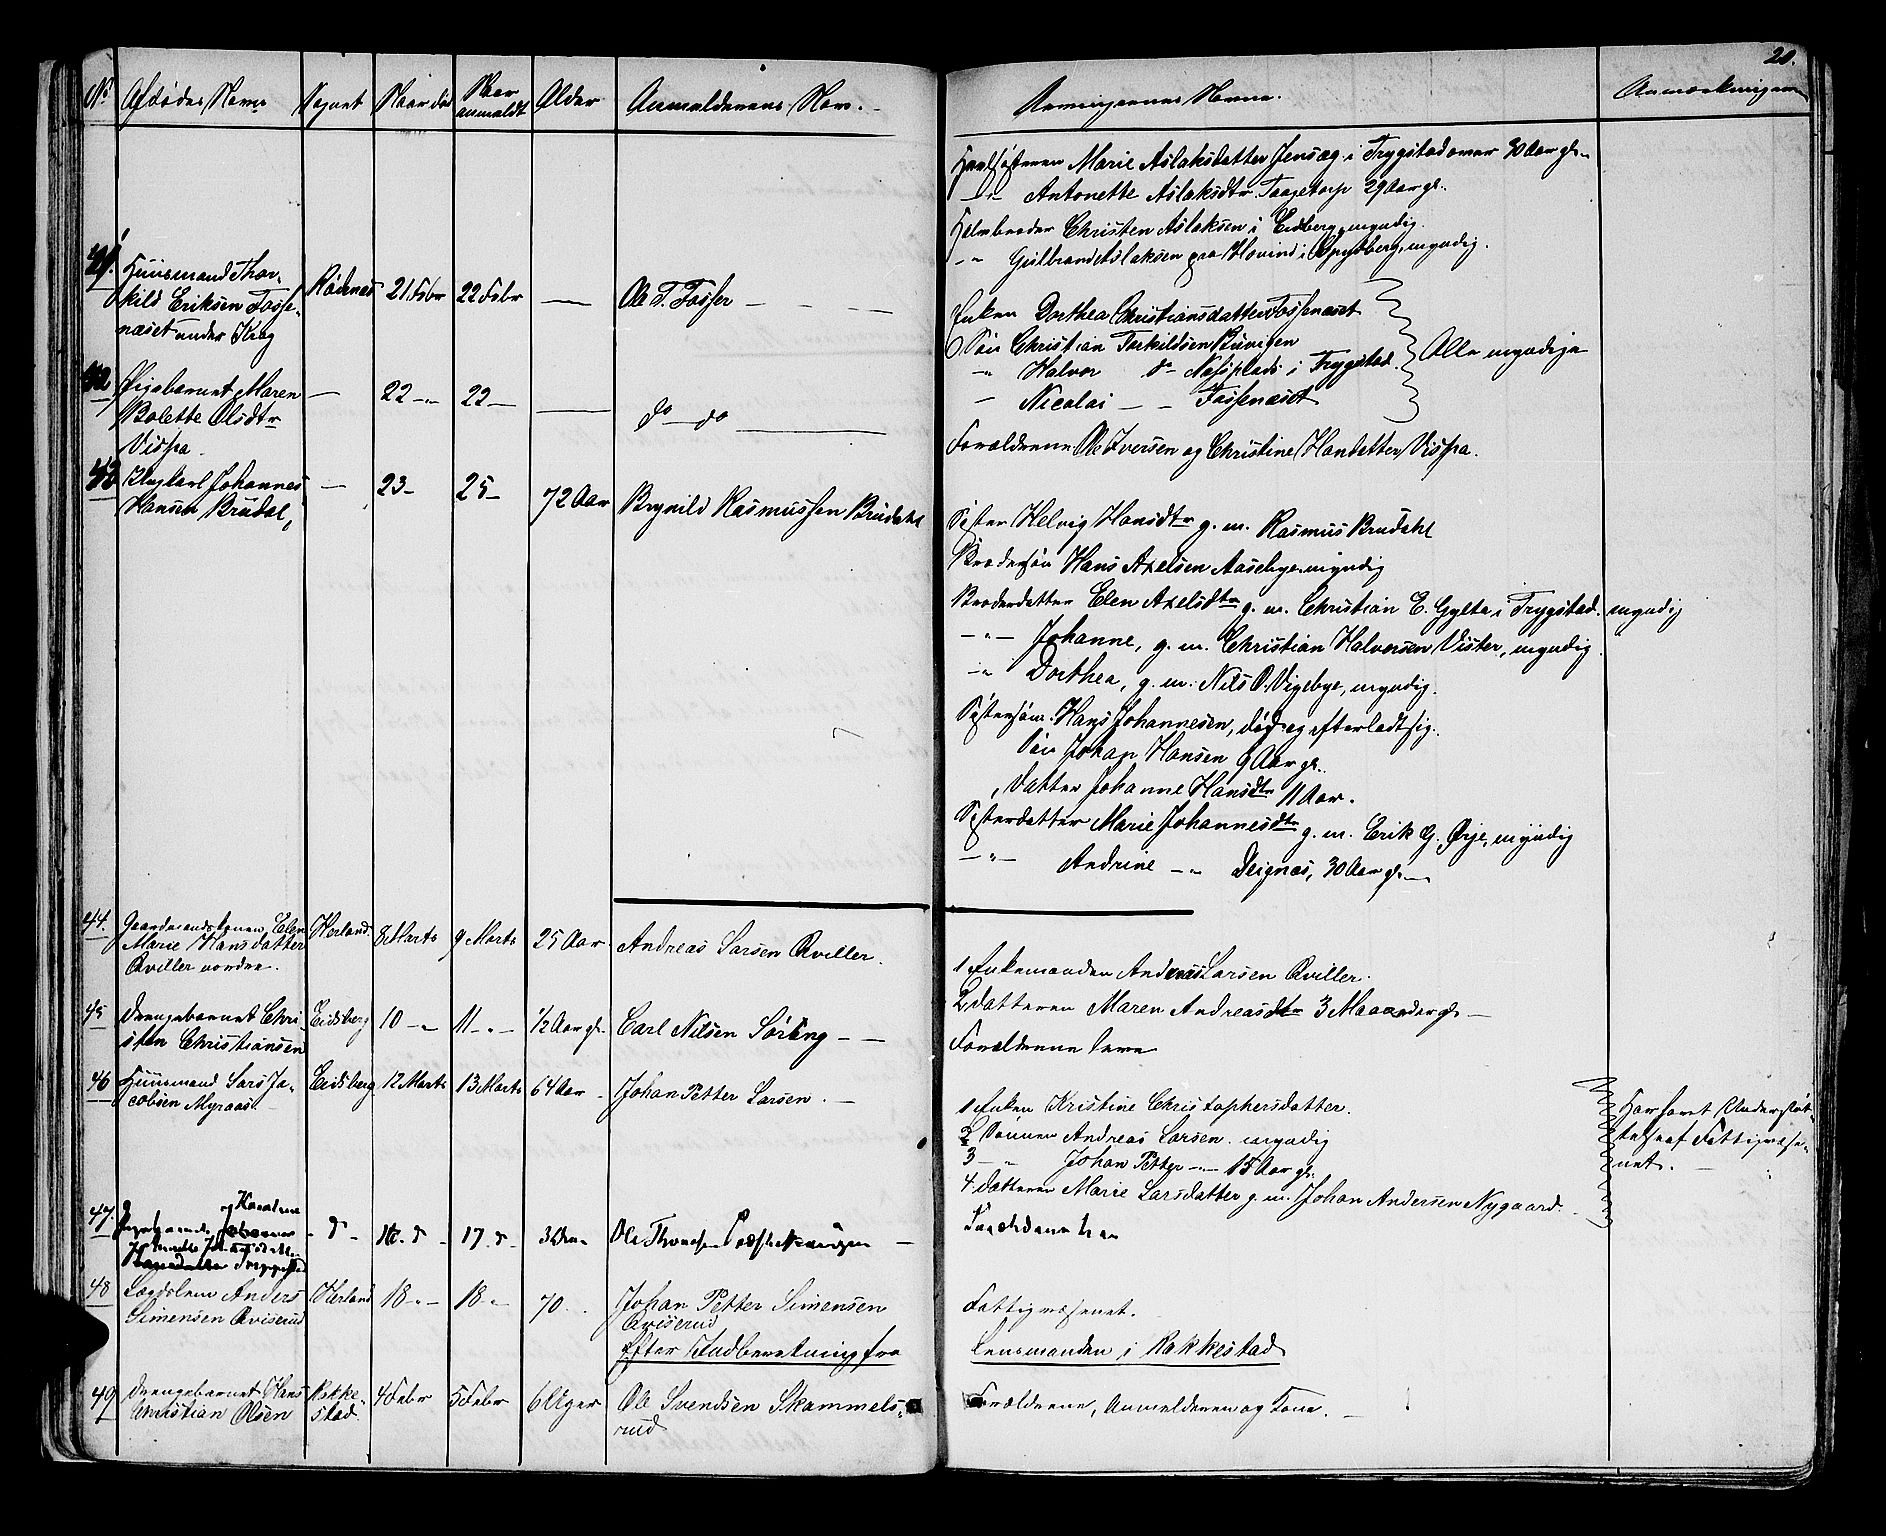 20.
No Afdødes Navn Sognet Naar død Naar anmeldt Alder Anmelderens Navn. Arvingernes Navne. Anmærkninger
Halvsøsteren Marie Aslaksdatter Jensæg i Trygstad omer 30 Aar gl.
—"— Antonette Aslaksdtr. Taagetorp 29 Aar gl.
Halvbroder Christen Aslaksen i Eidberg, myndig.
—"— Gulbrand Aslaksen paa Hovind i Spydberg, myndig.
41. Huusmand Thor-
kild Eriksen Fosse-
næset under Krog
Rødenes 21 Febr 22 Febr — Ole T. Fosser — — —
Enken Dorthea Christiansdatter Fossenæset
Søn Christian Torkildsen
—"— Halvor do Næsplads i Trygstad.
— Nicolai — — Fossenæset
Alle myndige
42. Pigebarnet Maren
Bolette Olsdtr
Vispa.
— 22 —"— 22 — — do — do —
Forældrene Ole Iversen og Christine Hansdatter Vispa.
43 Ungkarl Johannes
Hansen Brudal,
— 23 — 25 — 72 Aar Brynild Rasmussen Brudahl
Søster Helvig Hansdtr g. m. Rasmus Brudahl
Brodersøn Hans Axelsen Aasebye, myndig
Broderdatter Elen Axelsdtr g. m. Christian E. Gylte i Trygstad. myndig
—"— Johanne, g. m. Christian Halvorsen Vister, myndig.
—"— Dorthea, g. m. Nils O. Vigebye, myndig.
Søstersøn. Hans Johannesen, død og efterladt sig.
Søn Johan Hansen 9 Aar gl.
Datter Johanne Hansdtr 11 Aar.
Søsterdatter Marie Johannesdtr g. m. Erik G. Ørje, myndig
—"— Andrine —"— Deignæs, 30 Aar gl. —
44. Gaardmandskonen Elen
Marie Hansdatter
Qviller nordre.
Herland. 8 Marts 9 Marts 25 Aar Andreas Larsen Qviller.
1 Enkemanden Andreas Larsen Qviller.
2 Datteren Maren Andreasdtr 3 Maaneder gl. —
45 Drengebarnet Chri-
sten Christiansen
Eidsberg 10 —"— 11 —"— 1/2 Aar gl. Carl Nilsen Söring — —
Forældrene leve
46 Huusmand Lars Ja-
cobsen Myraas.
Eidsberg 12 Marts 13 Marts 64 Aar Johan Petter Larsen. —
1 Enken Kristine Christophersdatter.
2 Sønnen Andreas Larsen. myndig
3 —"— Johan Petter —"— 15 Aar gl.
4 Datteren Marie Larsdatter g. m. Johan Andersen Nygaard.
Har faaet Understøt-
telse af Fattigvæse-
net. —
47. Pigebarnet
do 16. do 17. do
Forældrene leve
48 Lægdslem Anders
Simensen Qviserud
Herland 18 —"— 18 —"— 70 Johan Petter Simensen
Qviserud
Fattigvæsenet.
Efter Indberetning fra Lensmanden i Rakkestad
49 Drengebarnet Hans
Christian Olsen
Rakke-
stad
4 Febr 5 Febr 6 Uger Ole Svendsen Skammels-
rud
Forældrene, Anmelderen og Kone. —